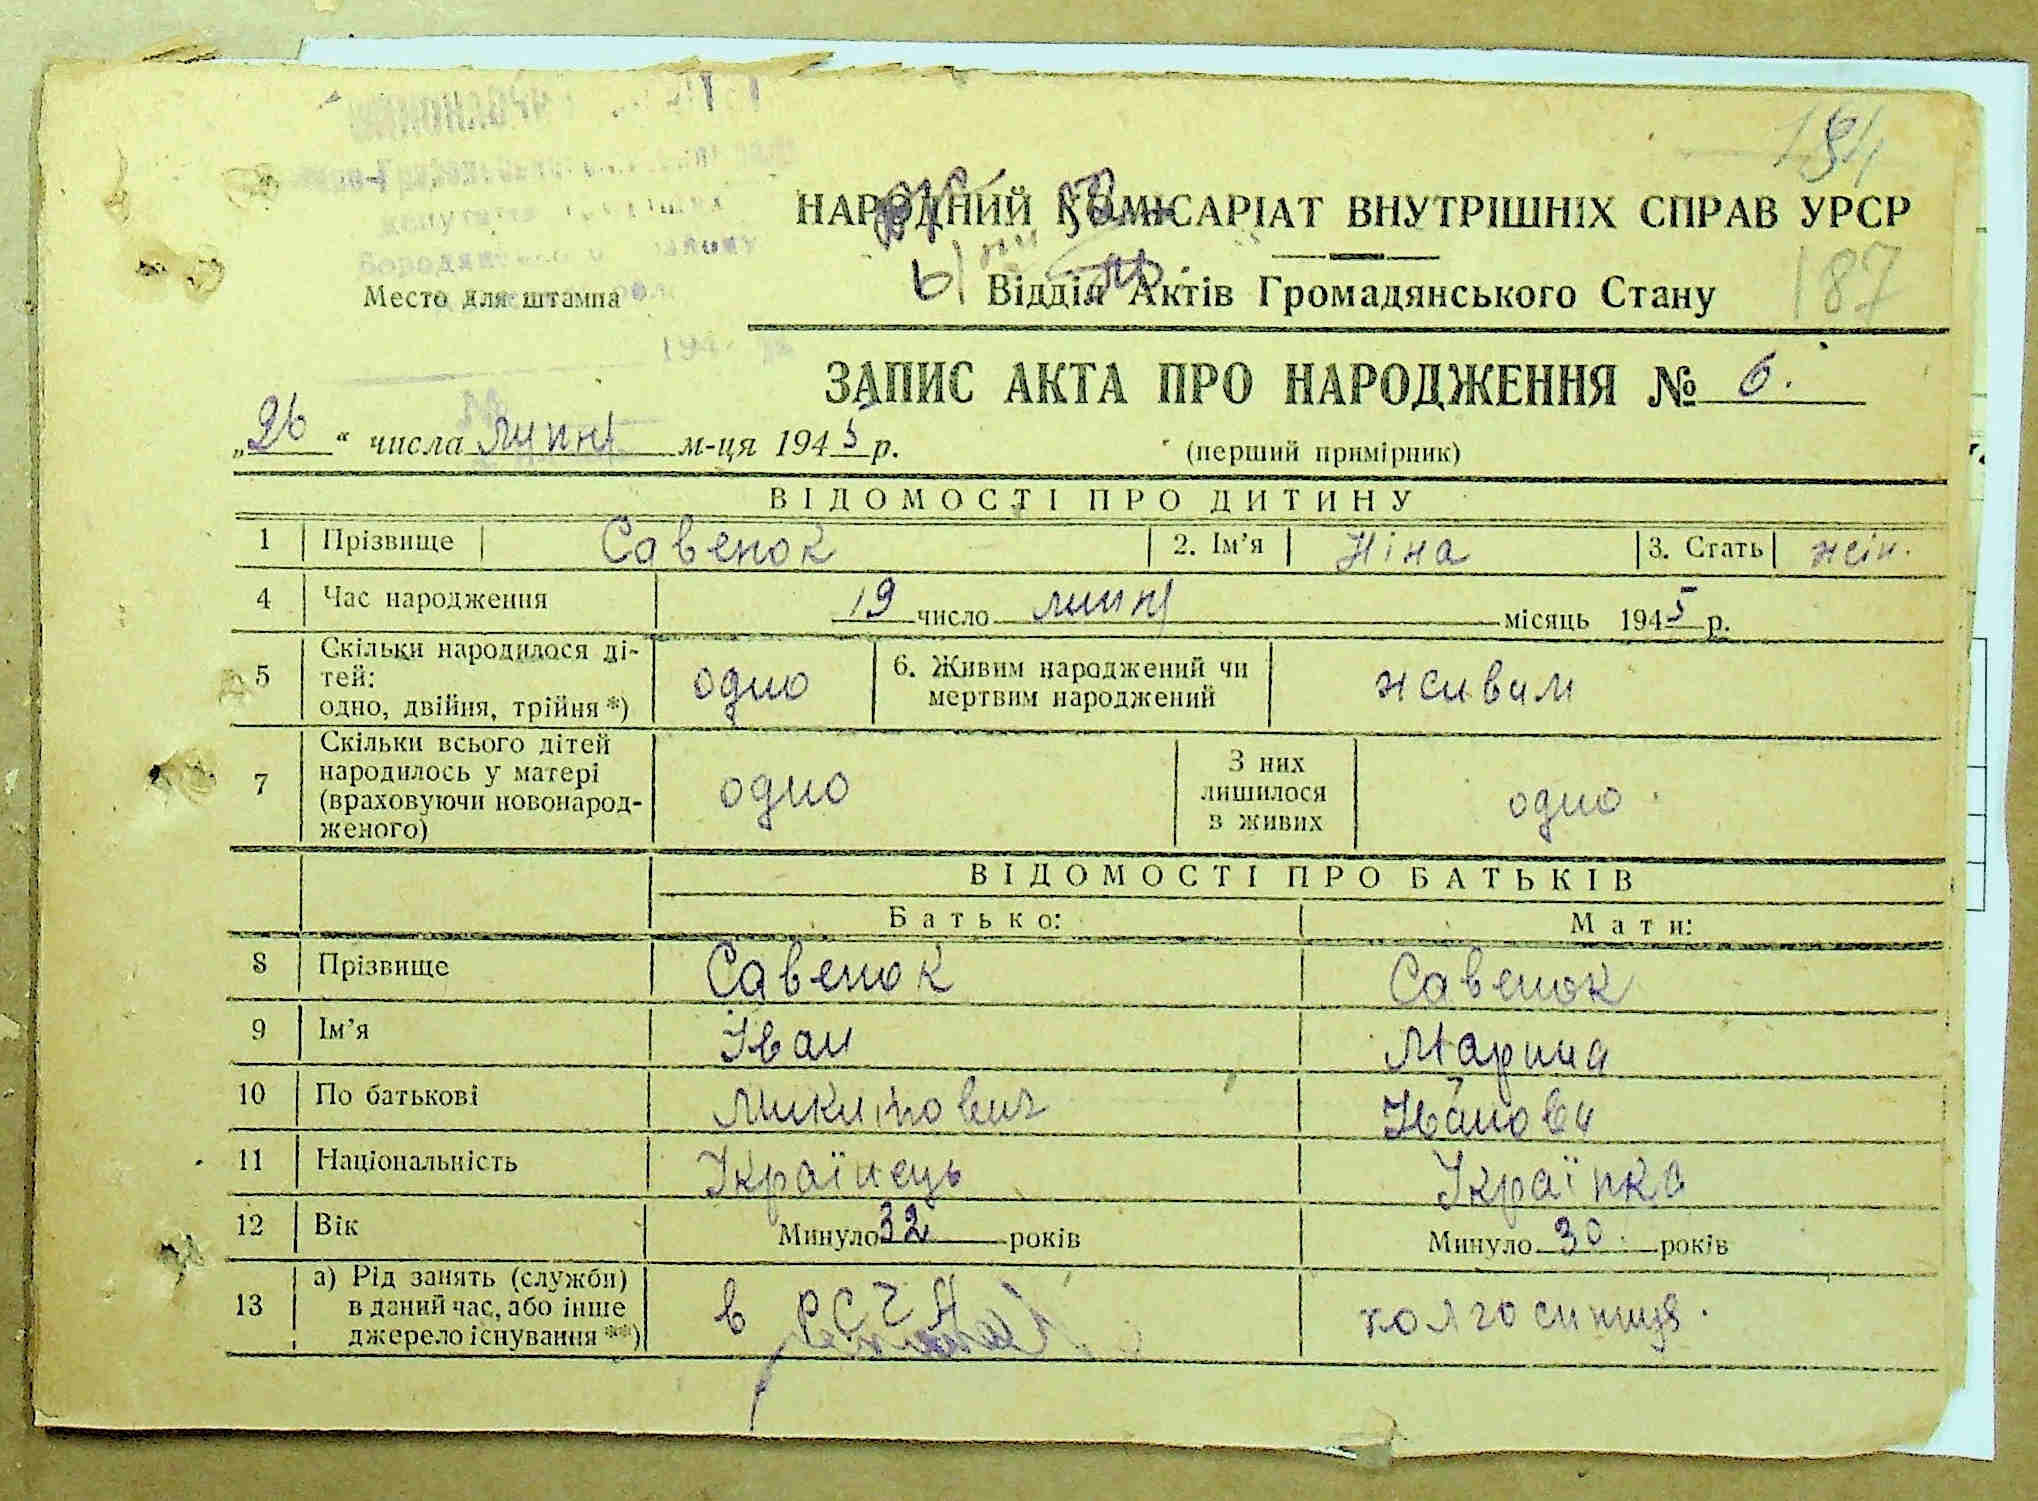 184
НАРОДНИЙ КОМІСАРІАТ ВНУТРІШНІХ СПРАВ УРСР
187
Відділ Актів Громадянського Стану
Место для штампа
194
ЗАПИС АКТА ПРО НАРОДЖЕННЯ № 6.
„26“ числа липня м-ця 1945 р. (перший примірник)
ВІДОМОСТІ ПРО ДИТИНУ
1 Прізвище Савенок 2. Ім’я Ніна 3. Стать жін.
4 Час народження 19 число липня місяць 1945 р.
5 Скільки народилося ді-
тей:
одно, двійня, трійня *) одно 6. Живим народжений чи
мертвим народжений живим
7 Скільки всього дітей
народилось у матері
(враховуючи новонарод-
женого) одно З них
лишилося
в живих одно.
ВІДОМОСТІ ПРО БАТЬКІВ
Батько: Мати:
8 Прізвище Савенок Савенок
9 Ім’я Іван Марина
10 По батькові Микитович Івановн
11 Національність Українець Українка
12 Вік Минуло 32 років Минуло 30 років
13 а) Рід занять (служби)
в даний час, або інше
джерело існування **) в РСЧА колгоспниця.